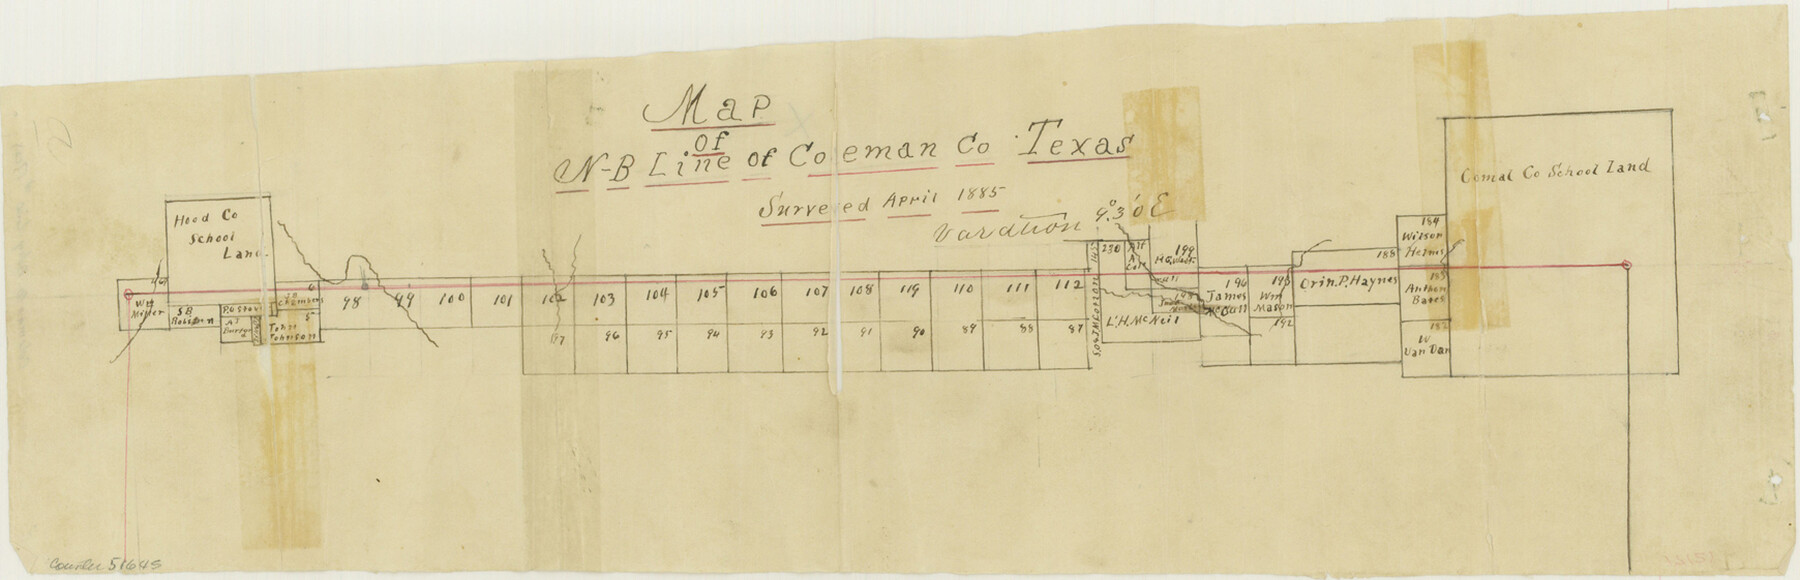 Map
of
N-B Line of Coleman Co Texas
Surveyed April 1885
Variation 9° 30' E
Hood Co
School
Land
Comal Co School Land
184
Wilson
Helms
188
Orin. P. Haynes
Anthon
Bates
W
Van Dan
199
230
196
James
McCall
Wm
Mason
192
L. H. McNeil
Wm
Miller
SB
6
Chambers
5
John
Johnson
98
99
100
101
102
103
104
105
106
107
108
119
110
111
112
97
96
95
94
93
92
91
90
89
88
87
Counter 51645